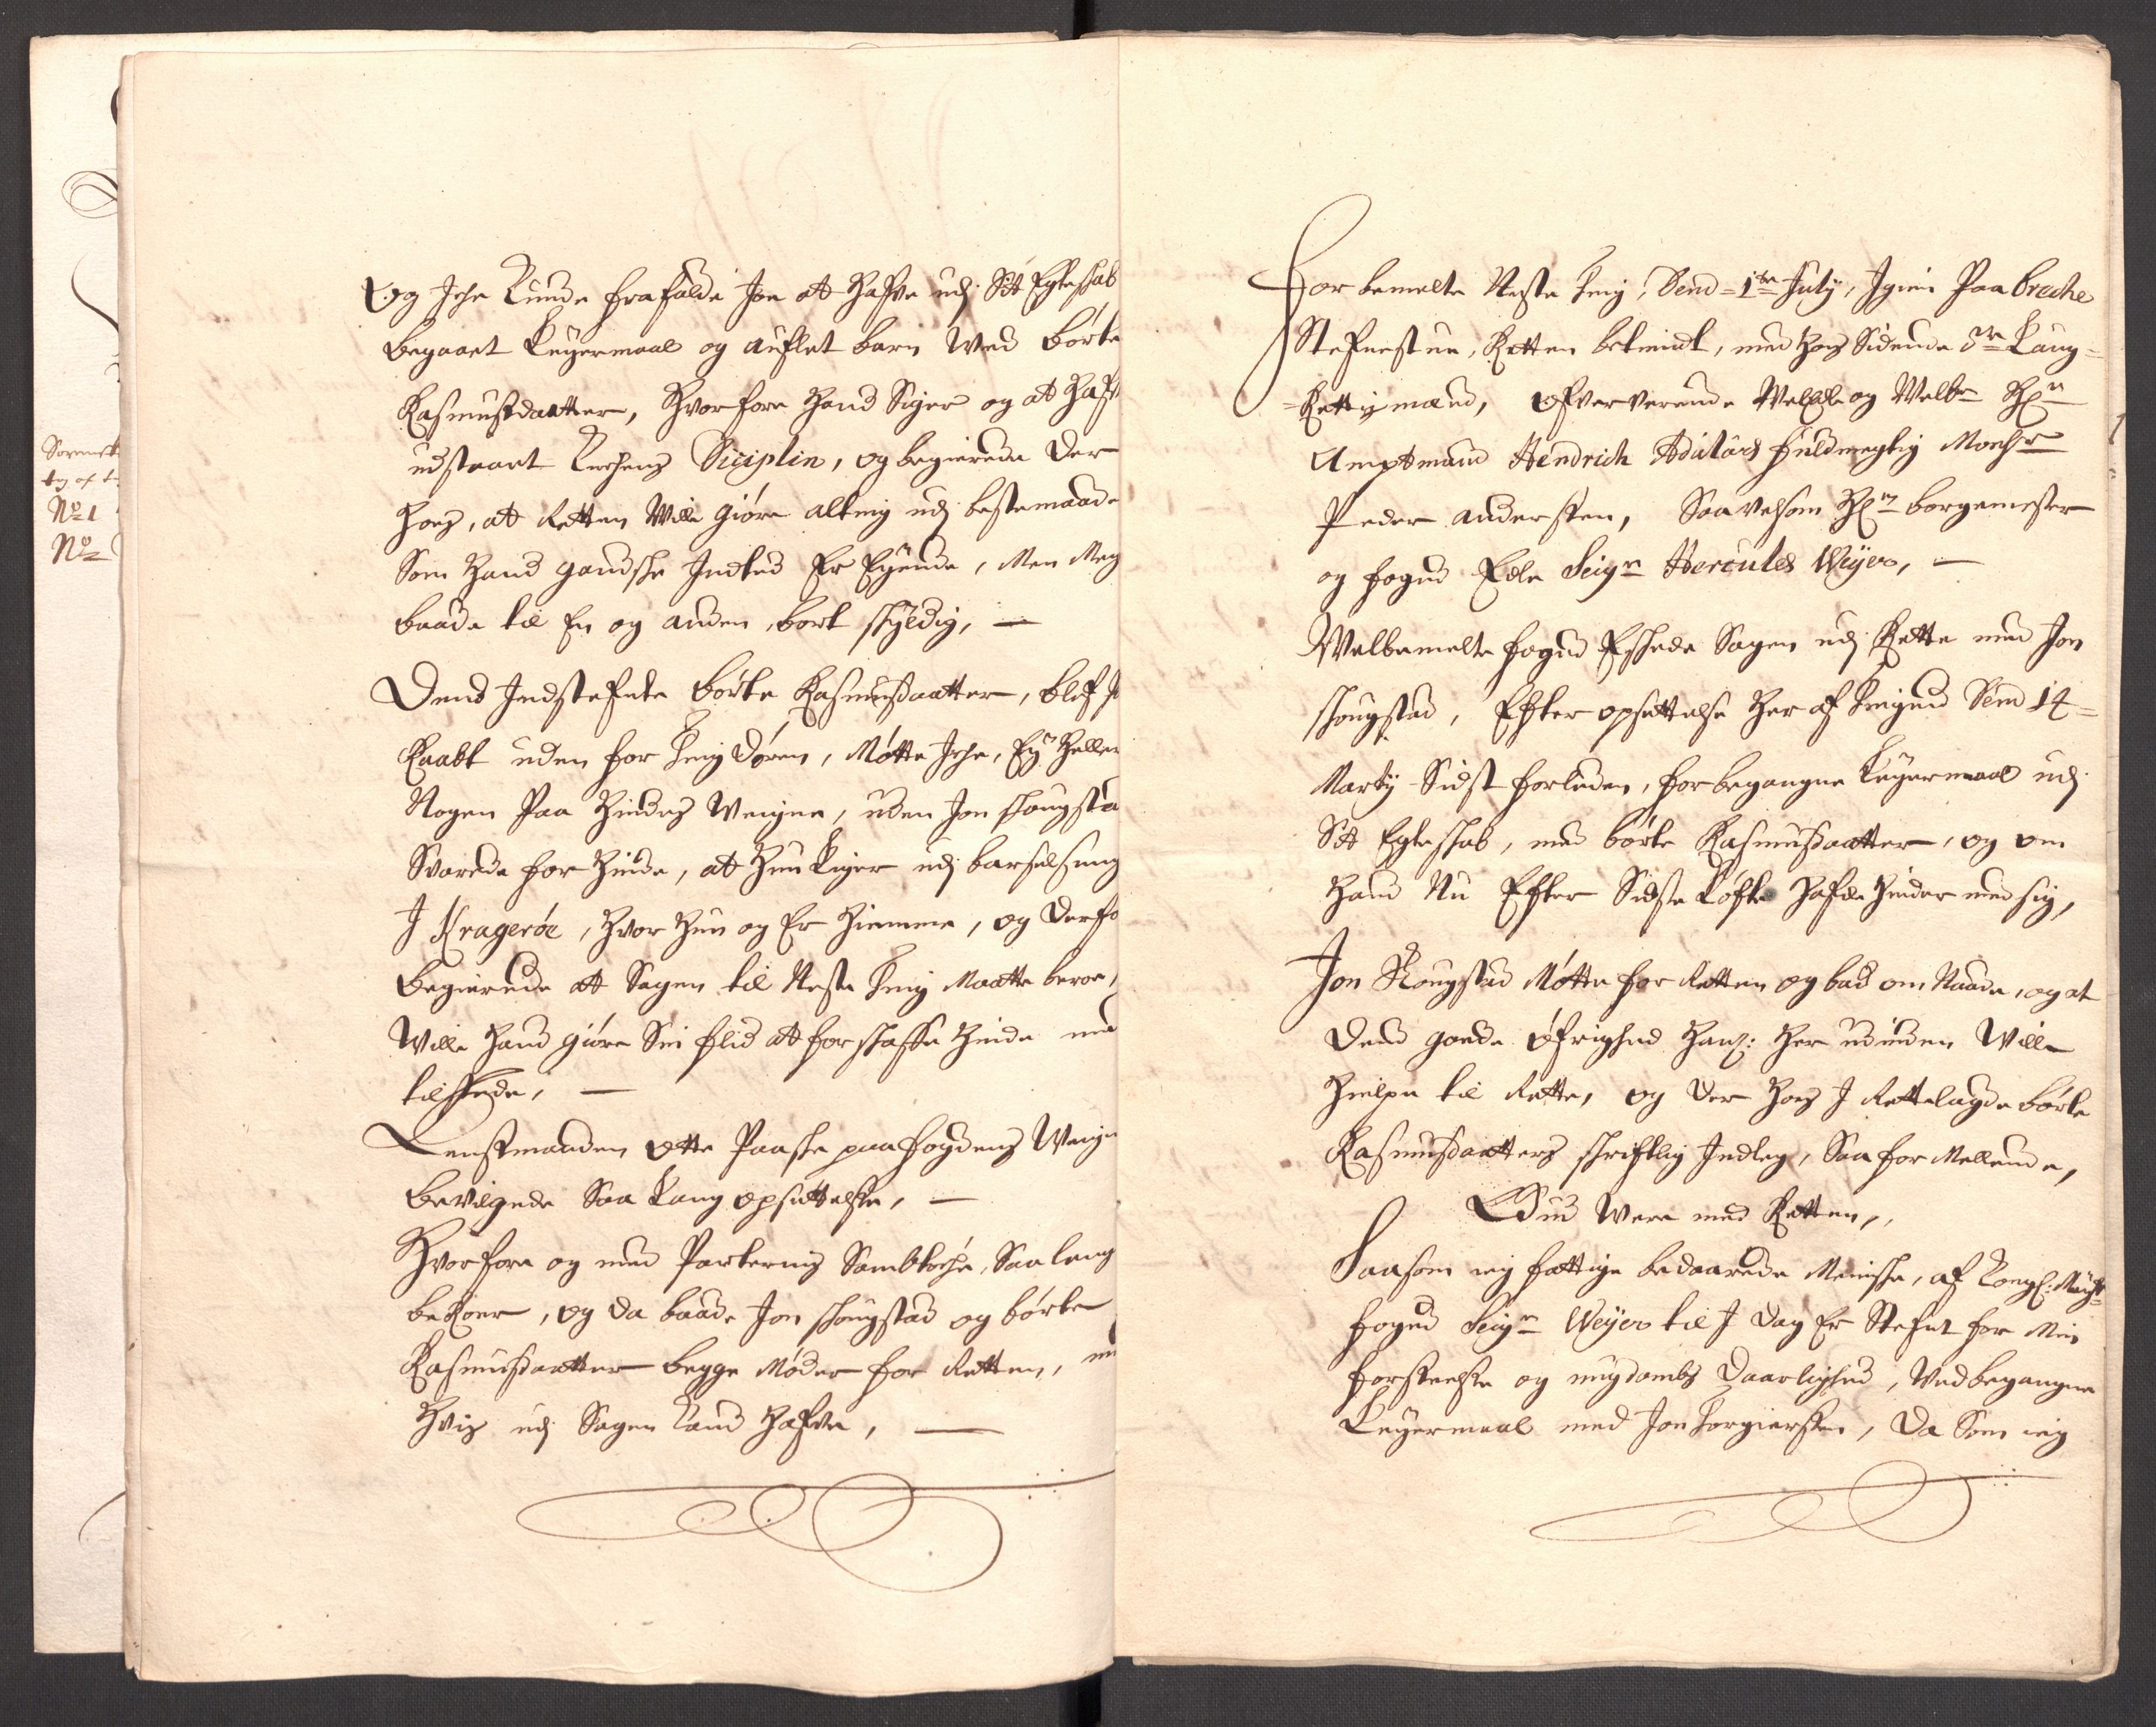 Og Iche kunde frafalde Jon at hafve udj Sit Egteskab
begaaet Leyermaal og auflet barn Med børte
Rasmusdaatter, Hvorfore hand Siger og at haf
udstaaet Kirchens Diciplin, og begierede der
hos, at Retten Wille giøre alting udj beste maade
Som hand gandske Indted Er Eyende, Men Meg
baade til En og anden bort skyldig,
Dend Indstefnte børte Rasmusdaatter, blef
Raabt uden for ting døren, Møtte Iche, Ey heller
Nogen Paa hindes Weigne, uden Jon skougsta
Svarede for hinde, at hun liger udj barselseng
J Kragerøe, hvor hun og Er hiemme, og derfo
begierede at Sagen til Neste ting Maatte beroe,
Wille hand giøre Sin flid at forskaffe hinde
tilstede,
Lensmanden Otte Paaske paa fogdens Weigne
beviljede Saa lang opsettelse,
Hvorfore og med Parternis Sambtøche, Saa leng
beroer, og da baade Jon skougstad og børte
Rasmusdaatter begge Møder for Retten,
Hvis udj Sagen kand hafve,
Sorenskr
No 1
No
For bemelte Neste ting, Dend 1te July, Igien Paa breche
Stefnestue, Retten betiendt, med hos Sidende de Laug=
=Rettismænd, ofververende Weledle og Welbr Hr
Amptmand Hendrich Adelärs fuldmegtig Monsr
Peder andersen, Saavelsom Hr borgemester
og foged Edle Seigr Hercules Weyer,
Welbemelte foged Eskede Sagen udj Rette med Jon
skougstad, Efter opsettelse her af tinged Dend 14
Marty Sidst forleden, for begangne Leyermaal udj
Sit Egteskab, med børte Rasmusdaatter, og om
hand Nu Efter Sidste Løfte hafde hinder med sig,
Jon Skougstad Møtte for Retten og bad om Naade, og at
dend goede øfrighed hans: her udinden Wille
hielpe til Rette, og der hos J Rettelagde børte
Rasmusdaatters skriftlig Indleg, Saa formellende,
Gud Were med Retten,,
Saasom ieg fattige bedaarede Meniske, af Kongl: Mayts
foged Seigr Weyer til J dag Er Stefnt for Min
forseelse og ungdombs daarlighed, Wed begangne
Leyermaal med Jon torgiersen, da Som ieg